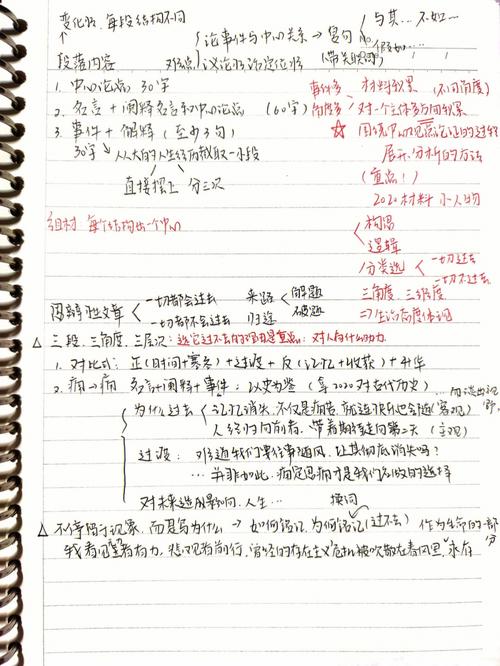 变化形,每段结构不同
与其…不如…
论事件与中心关系→复句
段落内容 议论形
(带关联词)
1. 中心论点 30字
事件多 材料效果(不同角度)
2. 名言+阐释名言和中心论点(60字)
角度多 对一个主体多方向效果
3. 事件+解释(至少3句)
☆ 围绕中心观点论证的过程
30字→从人大的人生经历截取一小段
展开分析的方法
直接摆上 分三次
(重点!)
2020材料 小人物
组材 每个结构出一个中心
构思
逻辑
分类选 一切过去
一切不过去
三角度,三维度
⇒生活高度体现
思辨性文章 一切都会过去 来路 解题
一切都不会过去 归途 破题
△ 三段,三角度,三层次:选它过不去的理由是重点:对人有什么助力
1. 对比式:正(时间+寒冬)+过渡+反(记忆+收获)+升华
2. 痛→痛 名言+阐释+事件:以史为鉴(写2020对古代历史)…
为什么过去 记忆消失,不仅是痛苦,就连快乐也会随(客观)
人终归向前看,带着期待走向第二天(主观)
过渡:难道我们要往事随风,让其彻底消失吗?
…并非如此,痛定思痛才是我们应做的选择
对未来造成影响,人生… 换词
△ 不停留于现象,而是写为什么→如何铭记,为何铭记(过不去) 作为生命的一部分
我看见望者有力,悲观者前行,曾经的存在主义危机被吹散在春风里,永存